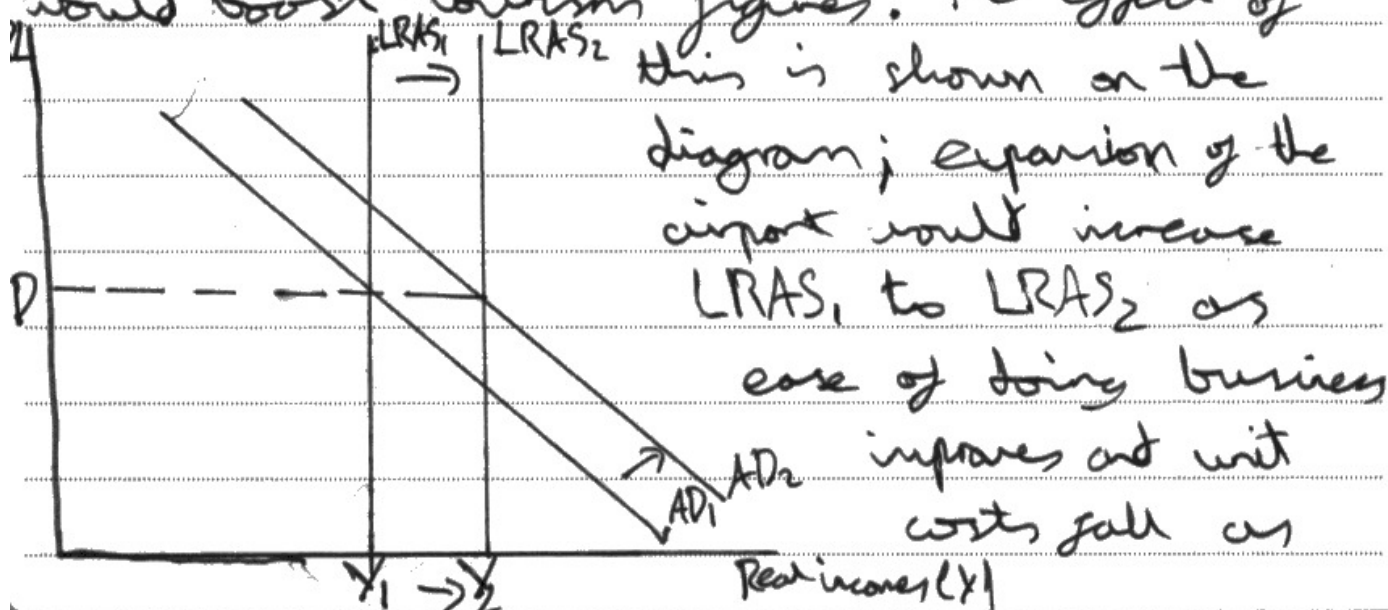 would boost tourism figures. The effect of
LRAS₁ LRAS₂ this is shown on the
→
diagram; expansion of the
airport would increase
P LRAS₁ to LRAS₂ as
ease of doing business
AD₂ improves and unit
AD₁ costs fall as
Y₁ → Y₂ Real incomes (Y)